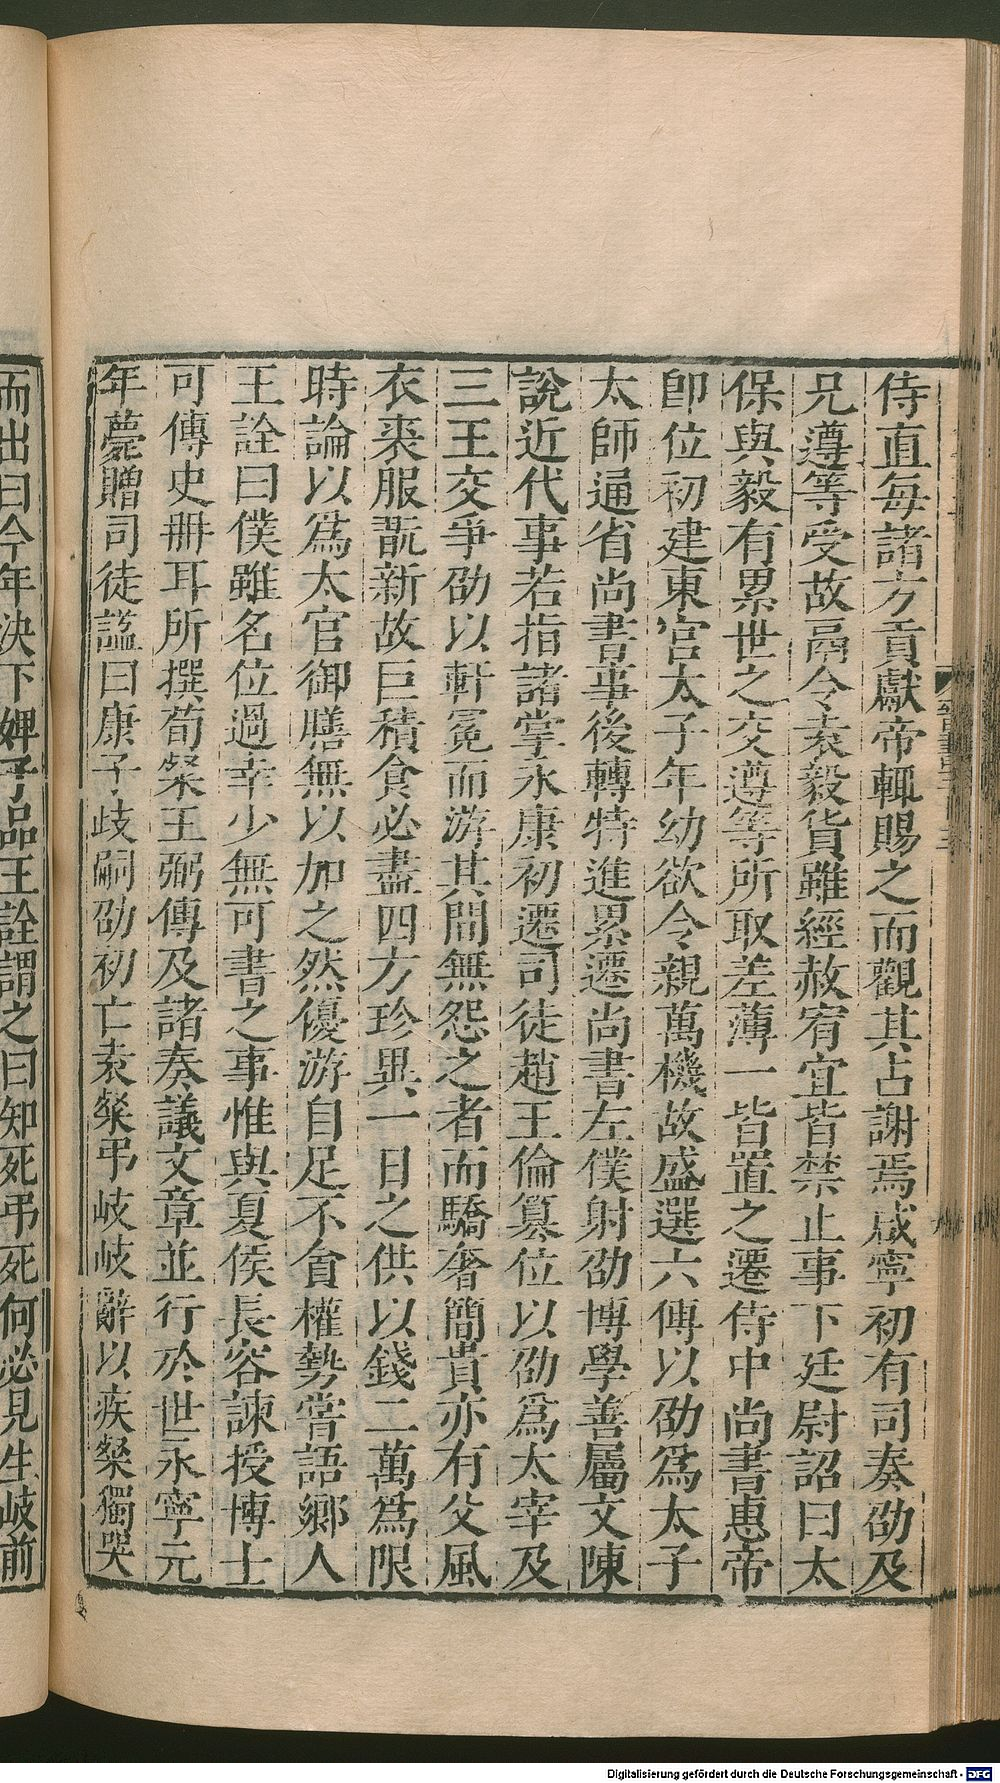 侍直每諸方貢獻帝輒賜之而觀其占謝焉咸寧初有司奏劭及
兄遵等受故鬲令袁毅貨雖經赦宥宜皆禁止事下廷尉詔曰太
保與毅有累世之交遵等所取差薄一皆置之遷侍中尚書惠帝
卽位初建東宮太子年幼欲令親萬機故盛選六傅以劭爲太子
太師通省尚書事後轉特進累遷尚書左僕射劭博學善屬文陳
說近代事若指諸掌永康初遷司徒趙王倫篡位以劭爲太宰及
三王交爭劭以軒冕而游其間無怨之者而驕奢簡貴亦有父風
衣裘服翫新故巨積食必盡四方珍異一日之供以錢二萬爲限
時論以爲太官御膳無以加之然優游自足不貪權勢嘗語鄉人
王詮曰僕雖名位過幸少無可書之事惟與夏侯長容諫授博士
可傳史册耳所撰荀粲王弼傳及諸奏議文章並行於世永寧元
年薨贈司徒諡曰康子歧嗣劭初亡袁粲弔岐岐辭以疾粲獨哭
而出曰今年決下婢子品王詮謂之曰知死弔死何必見生岐前
Digitalisierung gefördert durch die Deutsche Forschungsgemeinschaft - DFG